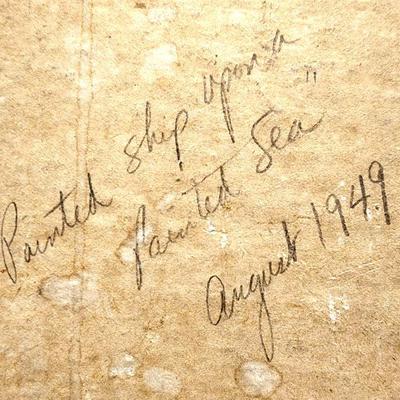 Painted ship upon a
Painted Sea"
August 1949